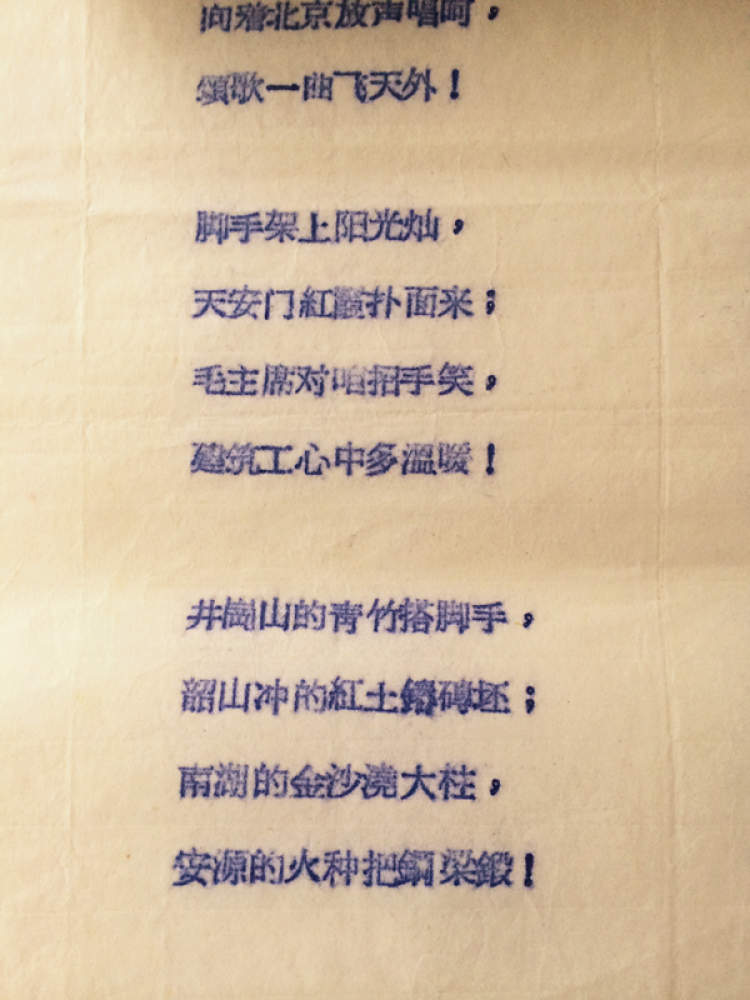 向着北京放声唱呵，
頌歌一曲飞天外！
脚手架上阳光灿，
天安门紅霞扑面来；
毛主席对咱招手笑，
建筑工心中多溫暖！
井崗山的青竹搭脚手，
韶山冲的紅土鑄磚坯；
南湖的金沙澆大柱，
安源的火种把鋼梁鍛！